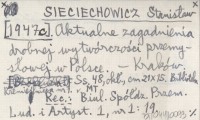 SIECIECHOWICZ Stanisław
[1947.] Aktualne zagadnienia
drobnej wytwórczości przemy-
słowej w Polsce. – Kraków.
Ss. 48, okł., cm 21x15. Bibliotek
MT
Rec.: Biul. Spółdz. Przem.
Lud. i Artyst. 1, nr 1: 19.